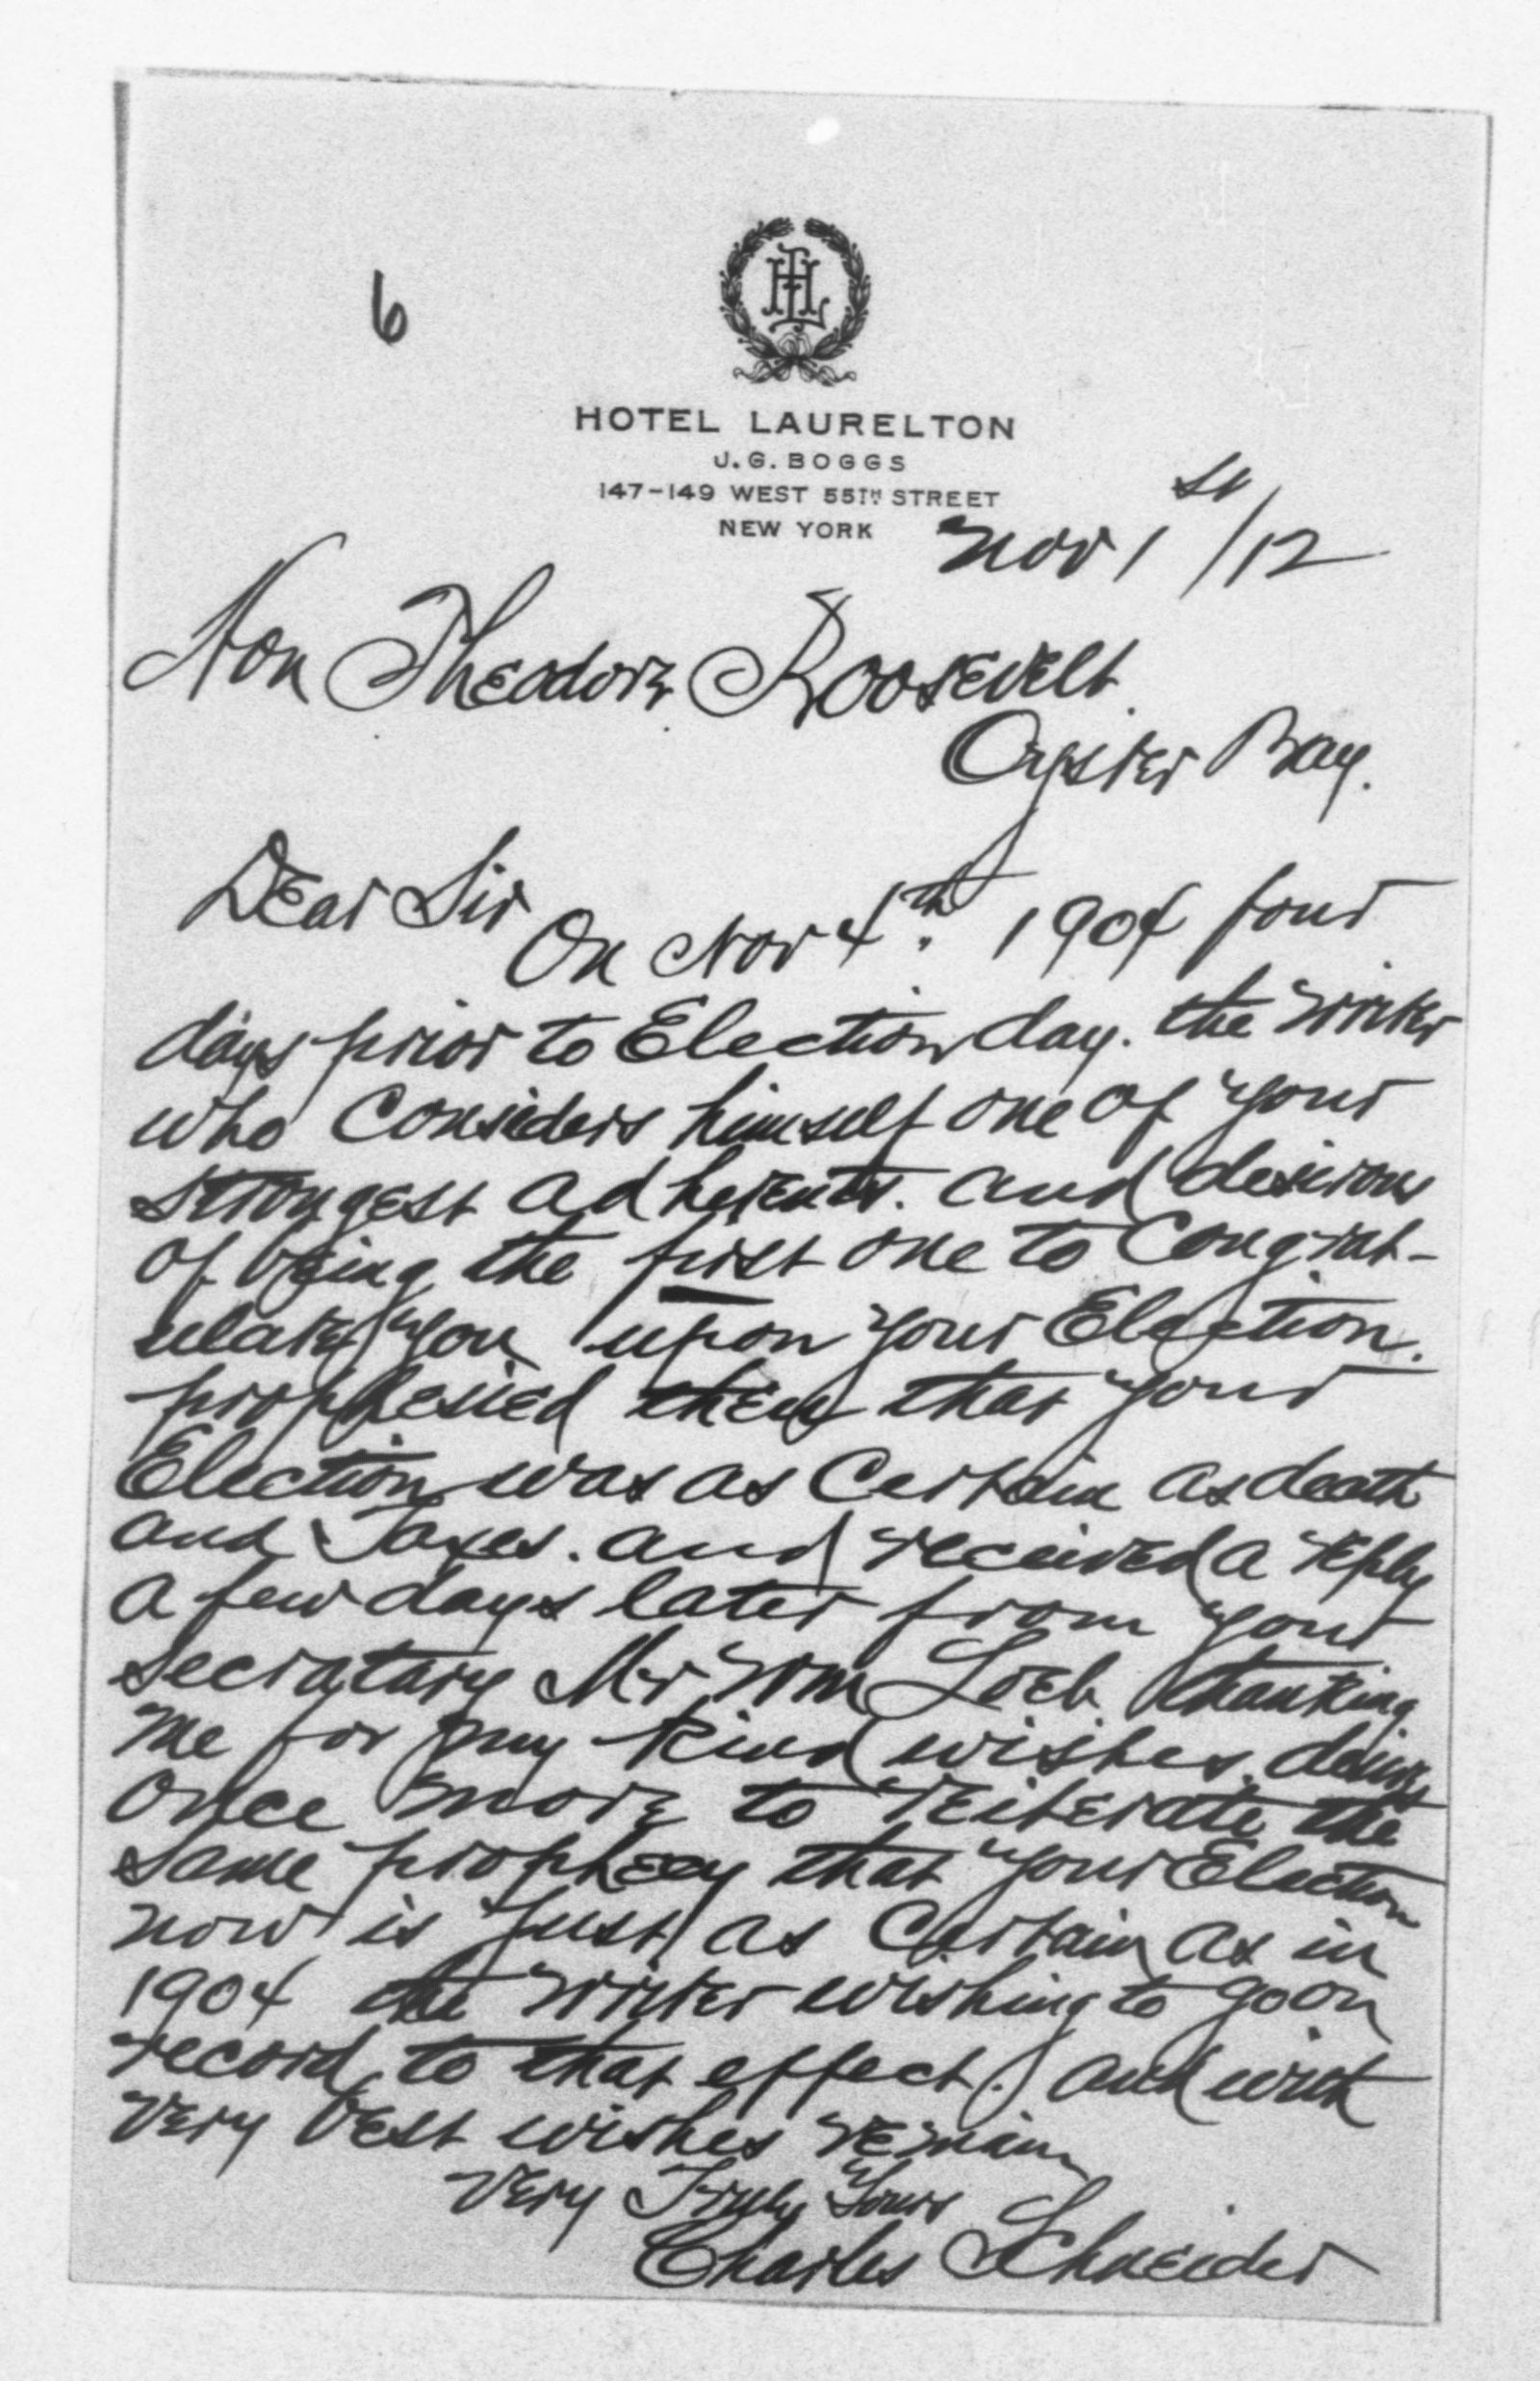 6
HL
HOTEL LAURELTON
J. G. BOGGS
147-149 WEST 55TH STREET
NEW YORK
Nov 1st/12
Hon Theodore Roosevelt
Oyster Bay.
Dear Sir
On Nov 4th. 1904 four
days prior to Election day. the writer
who considers himself one of your
strongest adherents. and desirous
of being the first one to Congrat-
ulate you upon your Election.
prophesied then that your
Election was as Certain as death
and Taxes. and received a reply
a few days later from your
secratary Mr Wm Loeb thanking
me for my kind wishes. desire
once more to reiterate the
same prophecy that your Election
now is just as Certain as in
1904 the writer wishing to go on
record to that effect. and with
very best wishes remain
Very Truly Yours
Charles Schneider